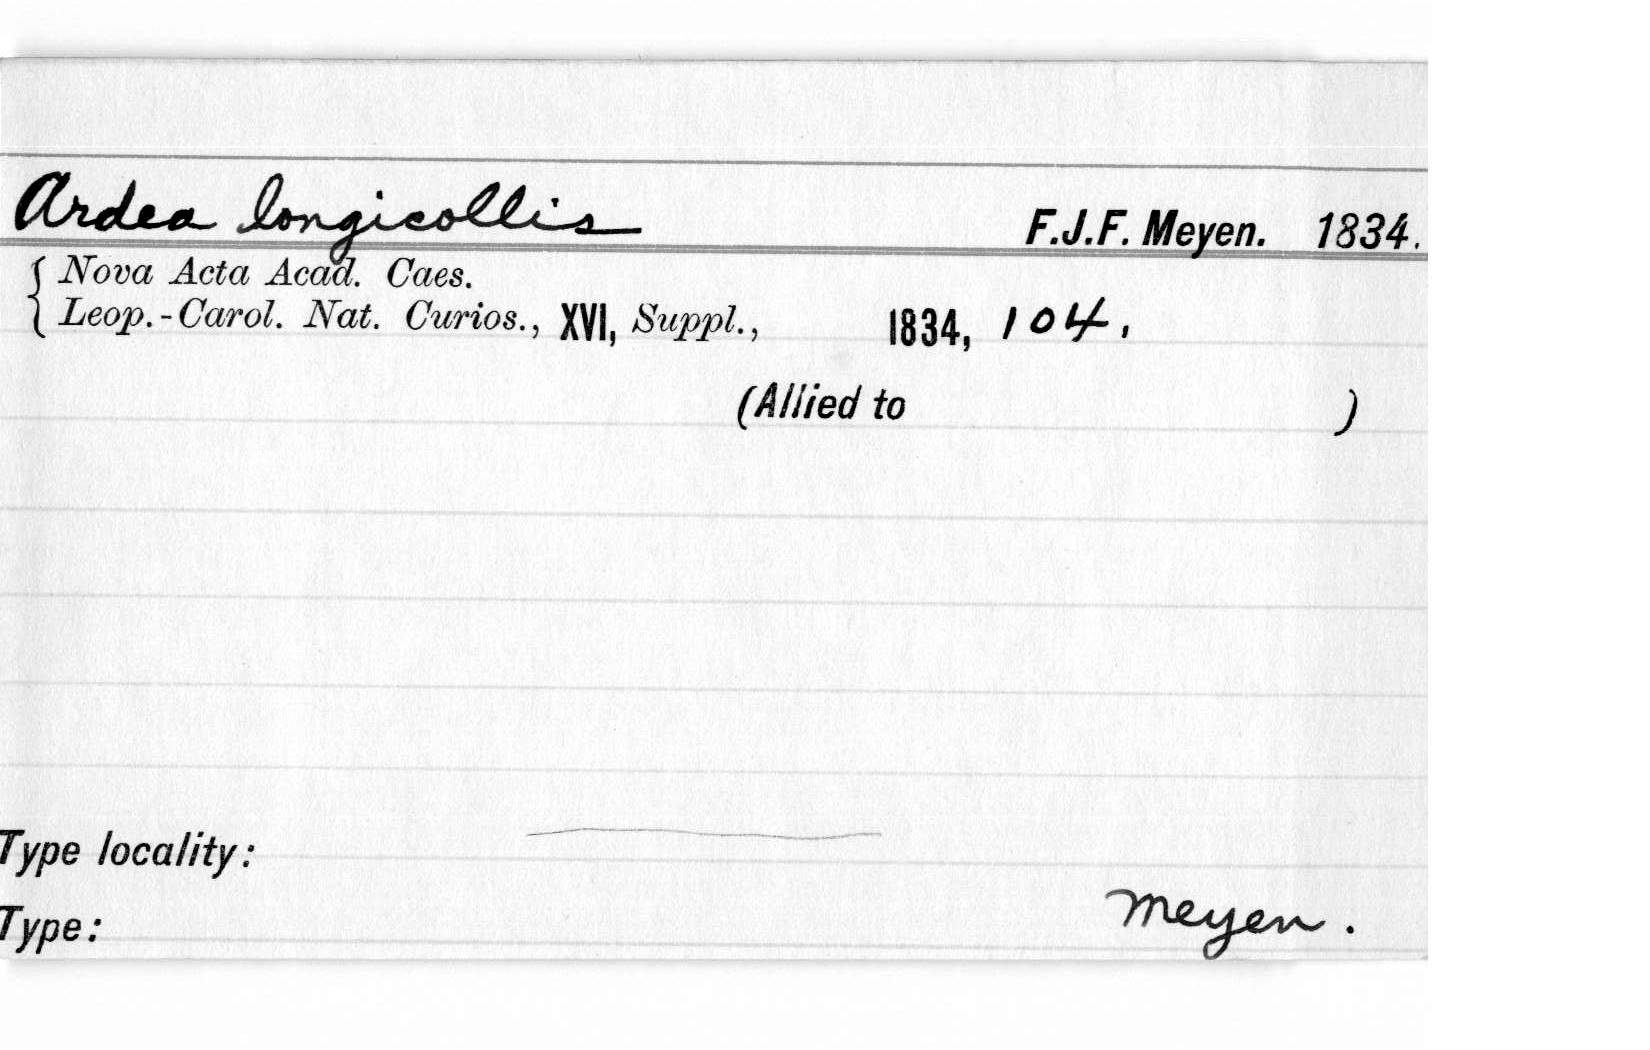 Ardea longicollis F.J.F. Meyen. 1834.
Nova Acta Acad. Caes.
Leop.-Carol. Nat. Curios., XVI, Suppl., 1834, 104.
(Allied to )
Type locality:
Type: Meyen.